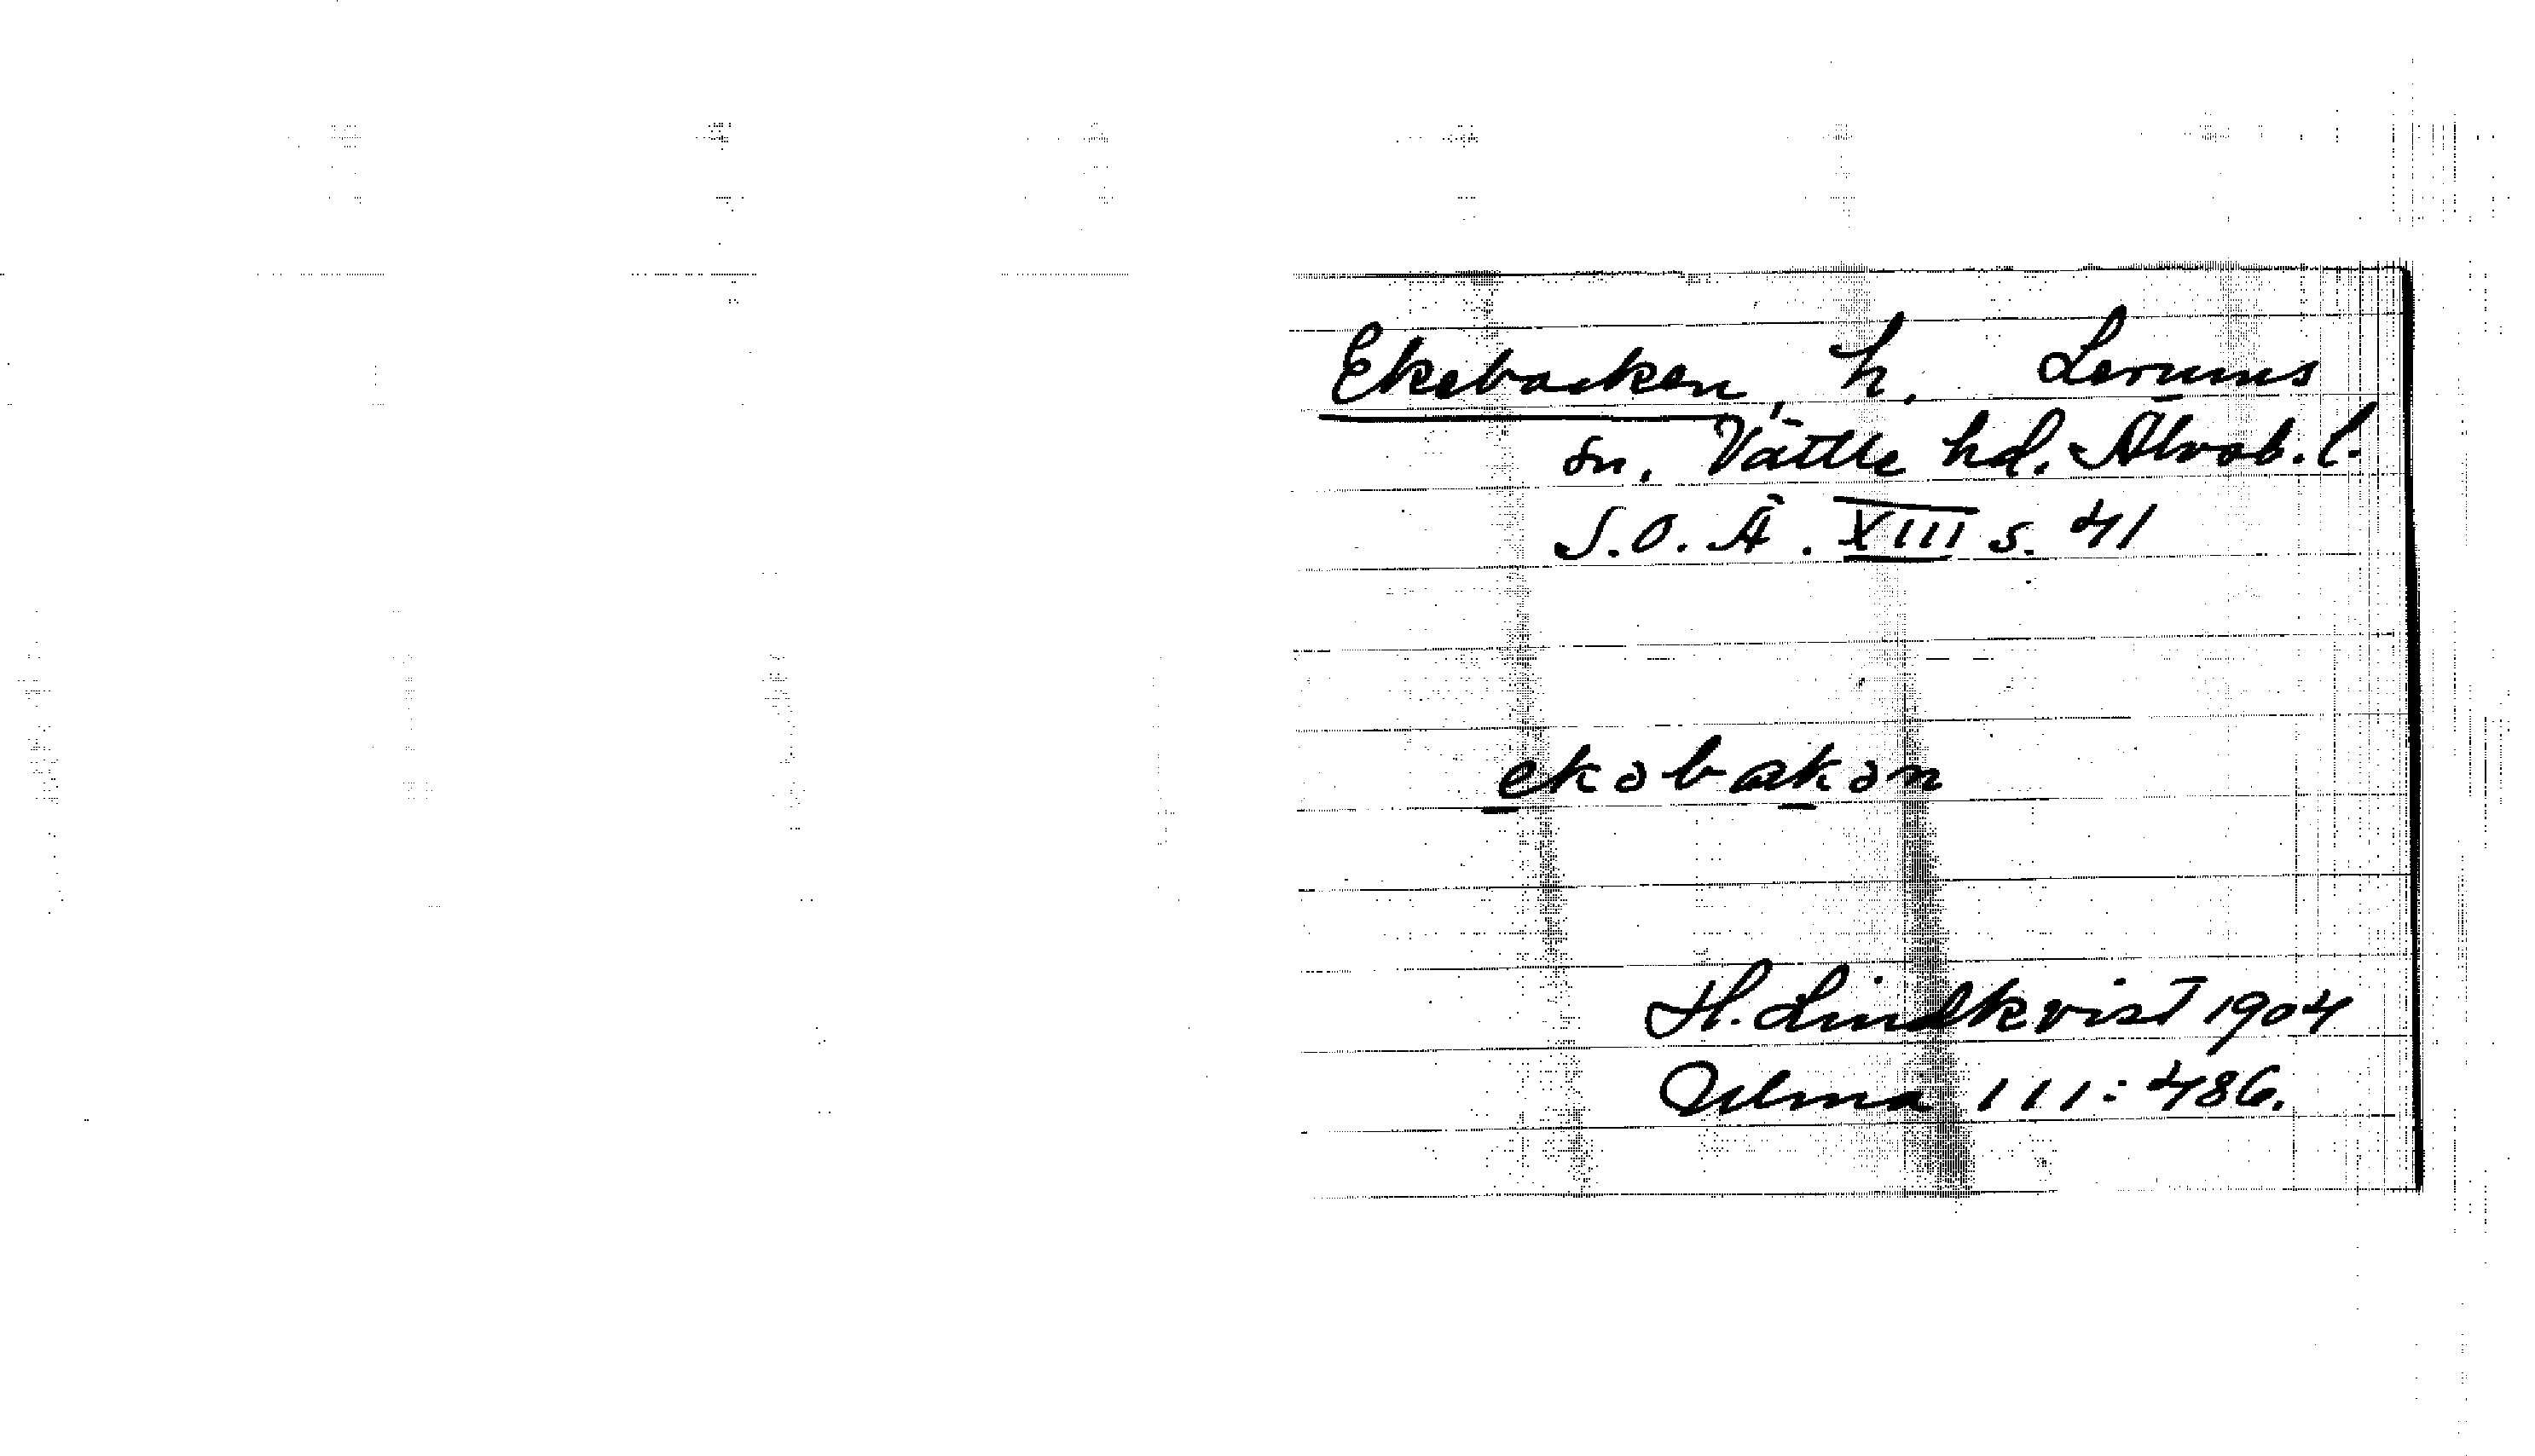 Ekebacken, h. Lerums
sn. Vättle hd. Älvsb. l.
S. O. Ä. XIII s. 41
ekəbakən
H. Lindkvist 1904
Ulma 111:486.